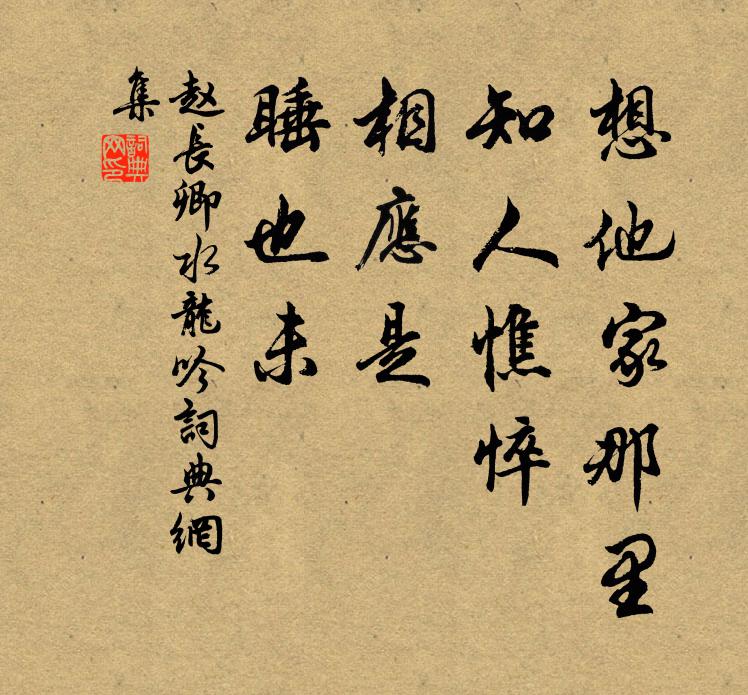 想他家那里
知人憔悴
相應是
睡也未
赵長卿水龍吟詞典網
集
詞典
网印